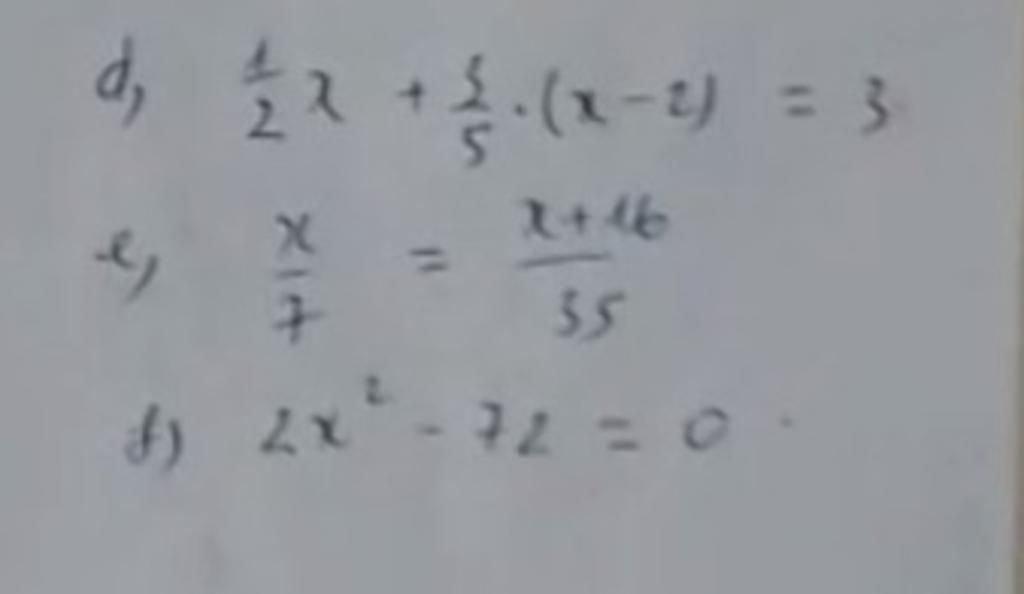 d, 1/2 x + 3/5 . (x - 2) = 3
e, x/7 = x+16/35
f) 2x² - 72 = 0